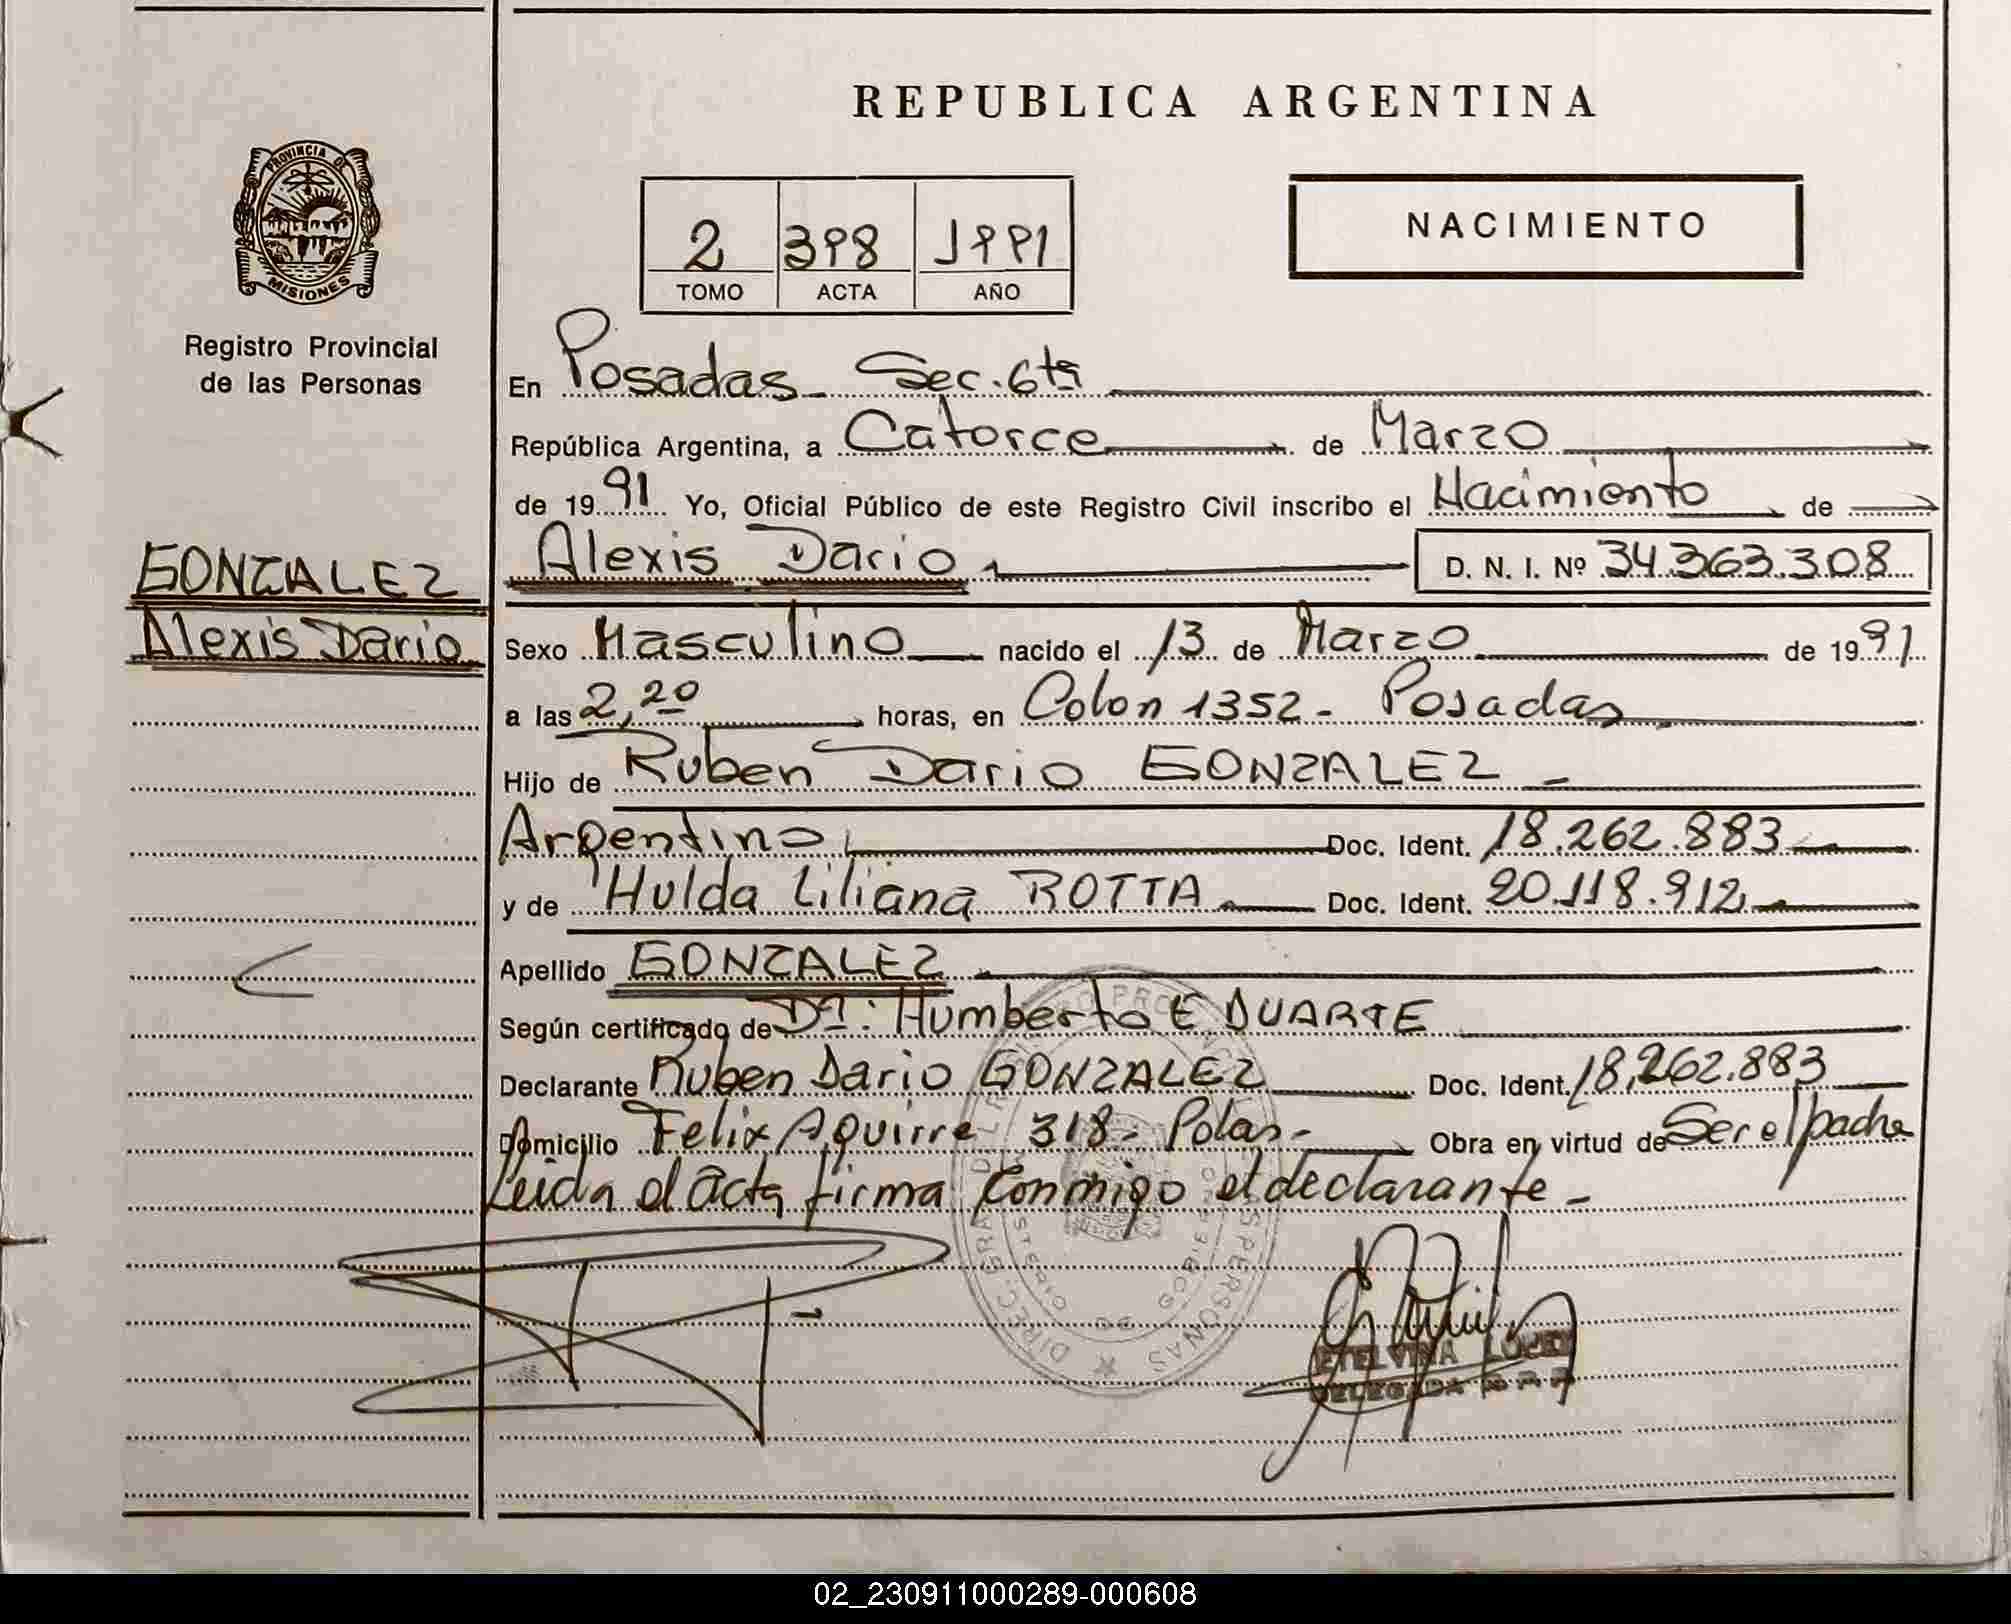 REPUBLICA ARGENTINA
PROVINCIA DE
MISIONES
Registro Provincial
de las Personas
2 398 1991
TOMO ACTA AÑO
NACIMIENTO
En Posadas - Sec. 6ta
República Argentina, a Catorce de Marzo
de 1991 Yo, Oficial Público de este Registro Civil inscribo el Nacimiento de
GONZALEZ
Alexis Dario
Alexis Dario D. N. I. Nº 34.363.308
Sexo Masculino nacido el 13 de Marzo de 1991
a las 2,20 horas, en Colon 1352 - Posadas
Hijo de Ruben Dario GONZALEZ -
Argentino, Doc. Ident. 18.262.883
y de Hulda Liliana ROTTA Doc. Ident. 20.118.912
Apellido GONZALEZ
Según certificado de Dr: Humberto E DUARTE
Declarante Ruben Dario GONZALEZ Doc. Ident. 18.262.883
Domicilio Felix Aguirre 318 - Pdas - Obra en virtud de Ser el padre
Leida el acta firma conmigo el declarante -
ETELVINA LOPEZ
DELEGADA
02_230911000289-000608